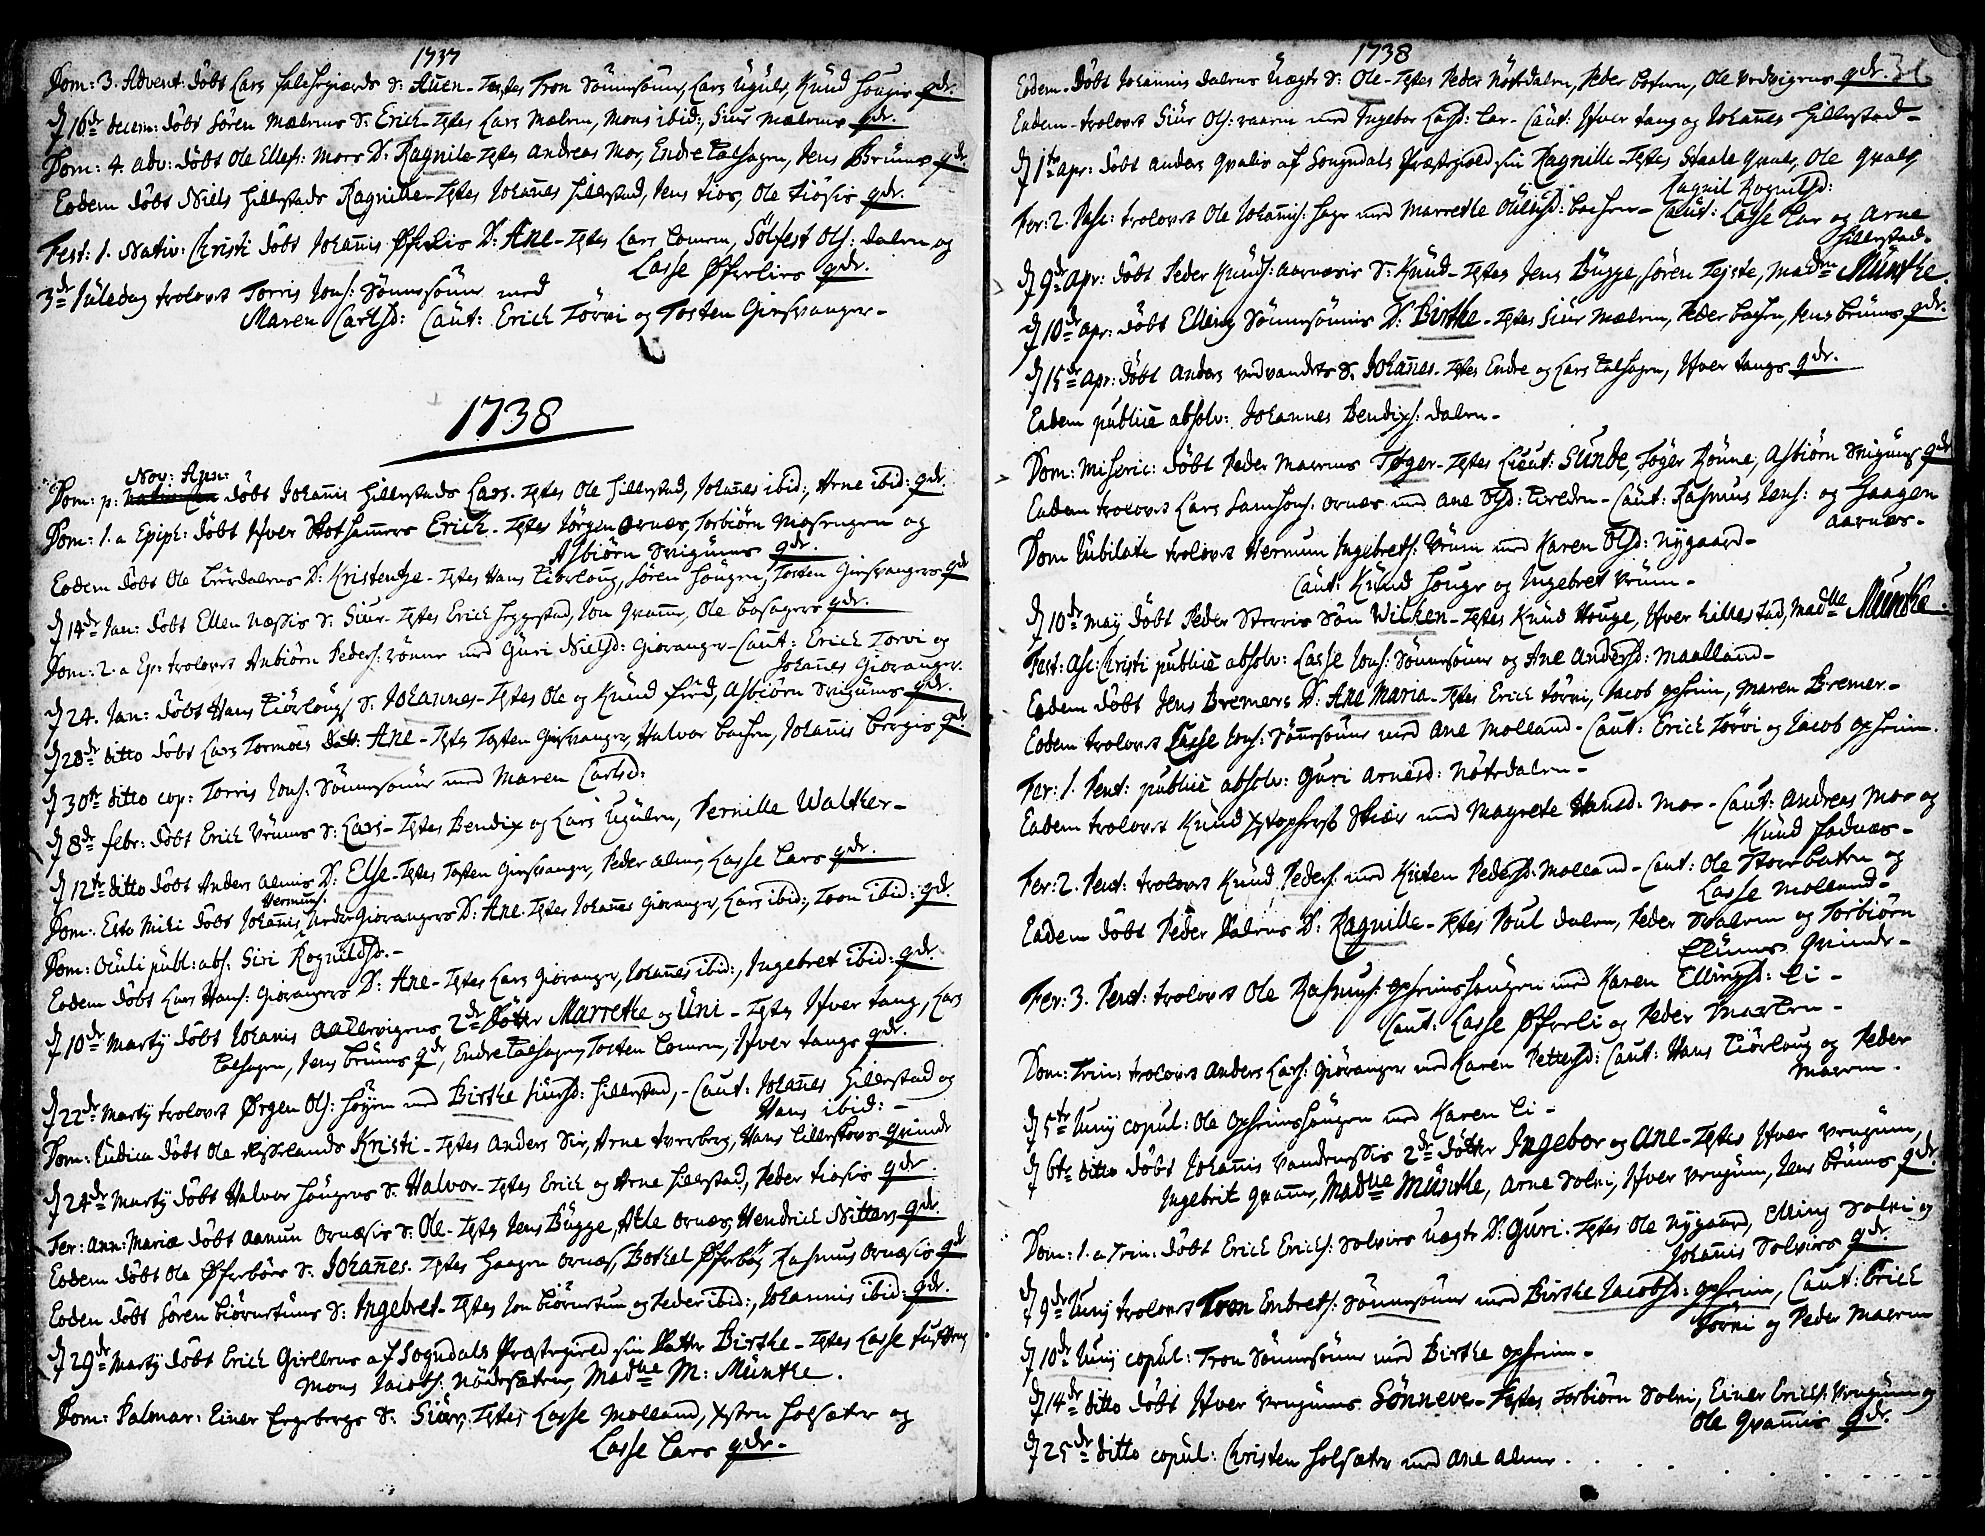 1737
Dom: 3. Advent: döbt Lars S: Auen - Testes Tron Sönnesönn, Lars Uguls, Knud Hougis qdr.
D 16de decem: döbt Sören Mælens S: Erich - Testes Lars Mælen, Mons ibid:, Siur Mælens qdr.
Dom: 4. adv: döbt Ole Ellefs: Mors D: Ragnile - Testes Andreas Mor, Endre Talhagen, Jens Bruns qdr
Eodem döbt Niels Hillestads Ragnille - Testes Johannes Hillestad, Jens Kios, Ole Kiosis qdr.
Fest: 1. Nativ: Christi döbt Johannis Øferlis D: Ane - Testes Lars Lomen, Sölfest Ols: dalen og
Lasse Øferlies qdr.
3de Juledag trolovet Torris Jons: Sönnesönn med
Maren Carlsd: Caut: Erich Törvi og Tosten Giesvanger -
1738
Nov: Ann:
Dom: p: döbt Johannis Hillestads Lars. Testes Ole Hillestad, Johannes ibid:, Arne ibid: qdr.
Dom: 1. a Epiph: döbt Iver Erich - Testes Jörgen Ornes, Torbiörn Mosengen og
Asbiörn Svigums qdr.
Eodem döbt Ole D: Kristentze - Testes Hans Tiörloug, Sören Hougen, Tosten Giesvangers qdr
D 14de Jan: döbt Ellen Næssis S: Siur - Testes Erich Heggestad, Jon Qvamme, Ole qdr.
Dom: 2. a Ep: trolovet Anbiörn Peders: Rönne med Guri Nielsd: Gioranger - Caut: Erich Torvi og
Johannes Gioranger.
D 24. Jan: döbt Hans Tiörlougs S: Johannes - Testes Ole og Knud, Asbiörn Svigums qdr.
D 28de ditto döbt Lars Tormoes datt: Ane - Testes Tosten Giesvanger, Halvor bachen, Johannis bergis qdr
D 30te ditto cop: Torris Jons: Sönnesönn med Maren Carlsd:
D 8de febr: döbt Erich Vrums S: Lars - Testes Bendix og Lars Ugulen, Pernille Walther -
D 12te ditto döbt Anders Alms D: Else - Testes Tosten Giesvanger, Peder alme, Lasse Lars qdr.
Hermuns:
Dom: Esto Mihi döbt Johannis Neder Giorangers D: Ane - Testes Johannes Gioranger, Lars ibid:, Toon ibid: qdr.
Dom: Oculi publ: abs: Siri Rognildsd: -
Eodem döbt Lars Hans: Giorangers D: Ane - Testes Lars Gioranger, Johannes ibid:, Ingebret ibid: qdr.
D 10de Martij döbt Johanis 2de Döttr Marrethe og Uni - Testes Iver Tang, Lars
Talhagen, Jens bruns qdr, Endre Talhagen, Tosten Lomen, Iver Tangs qdr.
D 22de Martij trolovet Ørgen Ols: Höyen med Birthe Siursd: Hillestad, - Caut: Johannes Hillestad og
Hans ibid: -
Dom: Iudica döbt Ole Kristi - Testes Anders Sie, Arne Averberg, Hans Qvinde
D 24de Martij döbt Halvor Hougens S: Halvor - Testes Erich og Arne Hillestad, Peder Kiosis qdr.
Fer: Ann: Mariæ döbt Aamun Ornæsis S: Ole - Testes Jens Bugge, Atle Ornæs, Hendrich Nitters qdr.
Eodem döbt Ole Øferböes S: Johannes. Testes Haagen Ornæs, Bothel Øferböe, Rasmus Ornæsis qdr
Eodem döbt Sören biörnetuns S: Ingebret - Testes Jon biörnetun og Peder ibid:, Johannis ibid: qdr.
D 29de Martij döbt Erich Giellens af Sogndals Præstegield sin Datter Birthe - Testes Lasse
Mons Jacobs: Nödesæter, Madlle M: Munthe.
Dom: Palmar: Einer Engebergs S: Siur, Testes Lasse Molland, Xsten Holsæter og
Lasse Lars qdr. -
1738
36
Eodem - döbt Johannis dalens Uægte S: Ole - Testes Peder Nöstdalen, Peder bachen, Ole qdr.
Eodem - trolovet Siur Ols: med Ingebor Larsd: Lar - Caut: Iver tang og Johannes Hillestad -
D 1te apr: döbt Anders Qvales af Songndals Præstegield sin Ragnille - Testes Staale Qvale, Ole Qvale,
Ragnil Rognilsd:
Fer: 2. Pasc: trolovet Ole Johannis: Hage med Marrethe bachen - Caut: Lasse Lar og Arne
Hillestad -
D 9de Apr: döbt Peder Knuds: Aarnæsis S: Knud - Testes Jens Bugge, Sören Teiste, Madme Münthe.
D 10de apr: döbt Elling Sönnesönns D: Birthe - Testes Siur Mælen, Peder bachen, Jens bruns qdr.
D 15de apr: döbt Anders S: Johannes - Testes Endre og Lars Talhagen, Iver tangs qdr.
Eodem publicè absolv: Johannes Bendixs: dalen -
Dom: Miseric: döbt Peder Maerens Töger - Testes Lieut: Sunde, Töger Rönne, Asbiörn Svigums qdr
Eodem trolovet Lars Samsons: Ornæs med Ane Olsd: - Caut: Rasmus Jens: og Haagen
Aarnæs -
Dom Jubilate trolovet Hermun Ingebrets: Vrum med Karen Olsd: Nygaard -
Caut: Knud Houge og Ingebret Vrum -
D 10de Maij döbt Peder Sterris Sön Wilchen - Testes Knud Houge, Iver Hillestad, Madlle Münthe.
Fest: Asc: Christi publicè absolv: Lasse Jons: Sönnesönn og Ane Andersd: Maalland -
Eodem döbt Jens Bremers D: Ane Maria - Testes Erich Törvi, Jacob Opheim, Maren Bremer -
Eodem trolovet Lasse Jons: Sönnesönn med Ane Molland - Caut: Erich Törvi og Jacob Opheim.
Fer: 1. Pent: publicè absolv: Guri Arnesd: Nötedalen -
Eodem trolovet Knud Skiær med Magrete Hansd: Mor - Caut: Andreas Mor og
Knud Fadnæs -
Fer: 2. Pent: trolovet Knud Peders: med Kisten Pedersd: Molland - Caut: Ole og
Lasse Molland -
Eodem döbt Peder Dalens D: Ragnille - Testes Poul dalen, Peder Dalen og Torbiörn
Qvinde -
Fer: 3. Pent: trolovet Ole Rasmus: Opheimshougen med Karen Ellingsd: Li -
Caut: Lasse Øferli og Peder Maeren -
Dom: Trin: trolovet Anders Lars: Giöranger med Karen Pettersd: Caut: Hans Tiörloug og Peder
Maeren.
D 5te Junij copul: Ole Opheimshougen med Karen Li -
D 6te ditto döbt Johannis 2de döttr Ingebor og Ane - Testes Iver Vrugum,
Ingebrit Qvamme, Madlle Münthe, Arne Solvi, Iver Vrugum, Jens bruns qdr.
Dom: 1. a Trin: döbt Erich Erichs: Solvies Uægte D: Guri - Testes Ole Nygaard, Elling Solvi og
Johannis Solvies qdr.
D 9de Junij trolovet Tron Endrets: Sönnesönn med Birthe Jacobsd: Opheim, Caut: Erich
Törvi og Peder Maeren
D 10de Junij copul: Tron Sönnesönn med Birthe Opheim -
D 14de ditto döbt Iver Vrugums Sönneve - Testes Torbiörn Solvi, Einer Erichs: Vrugum og
Ole Qvammis qdr.
D 25de ditto copul: Christen Holsæter med Ane Alme.